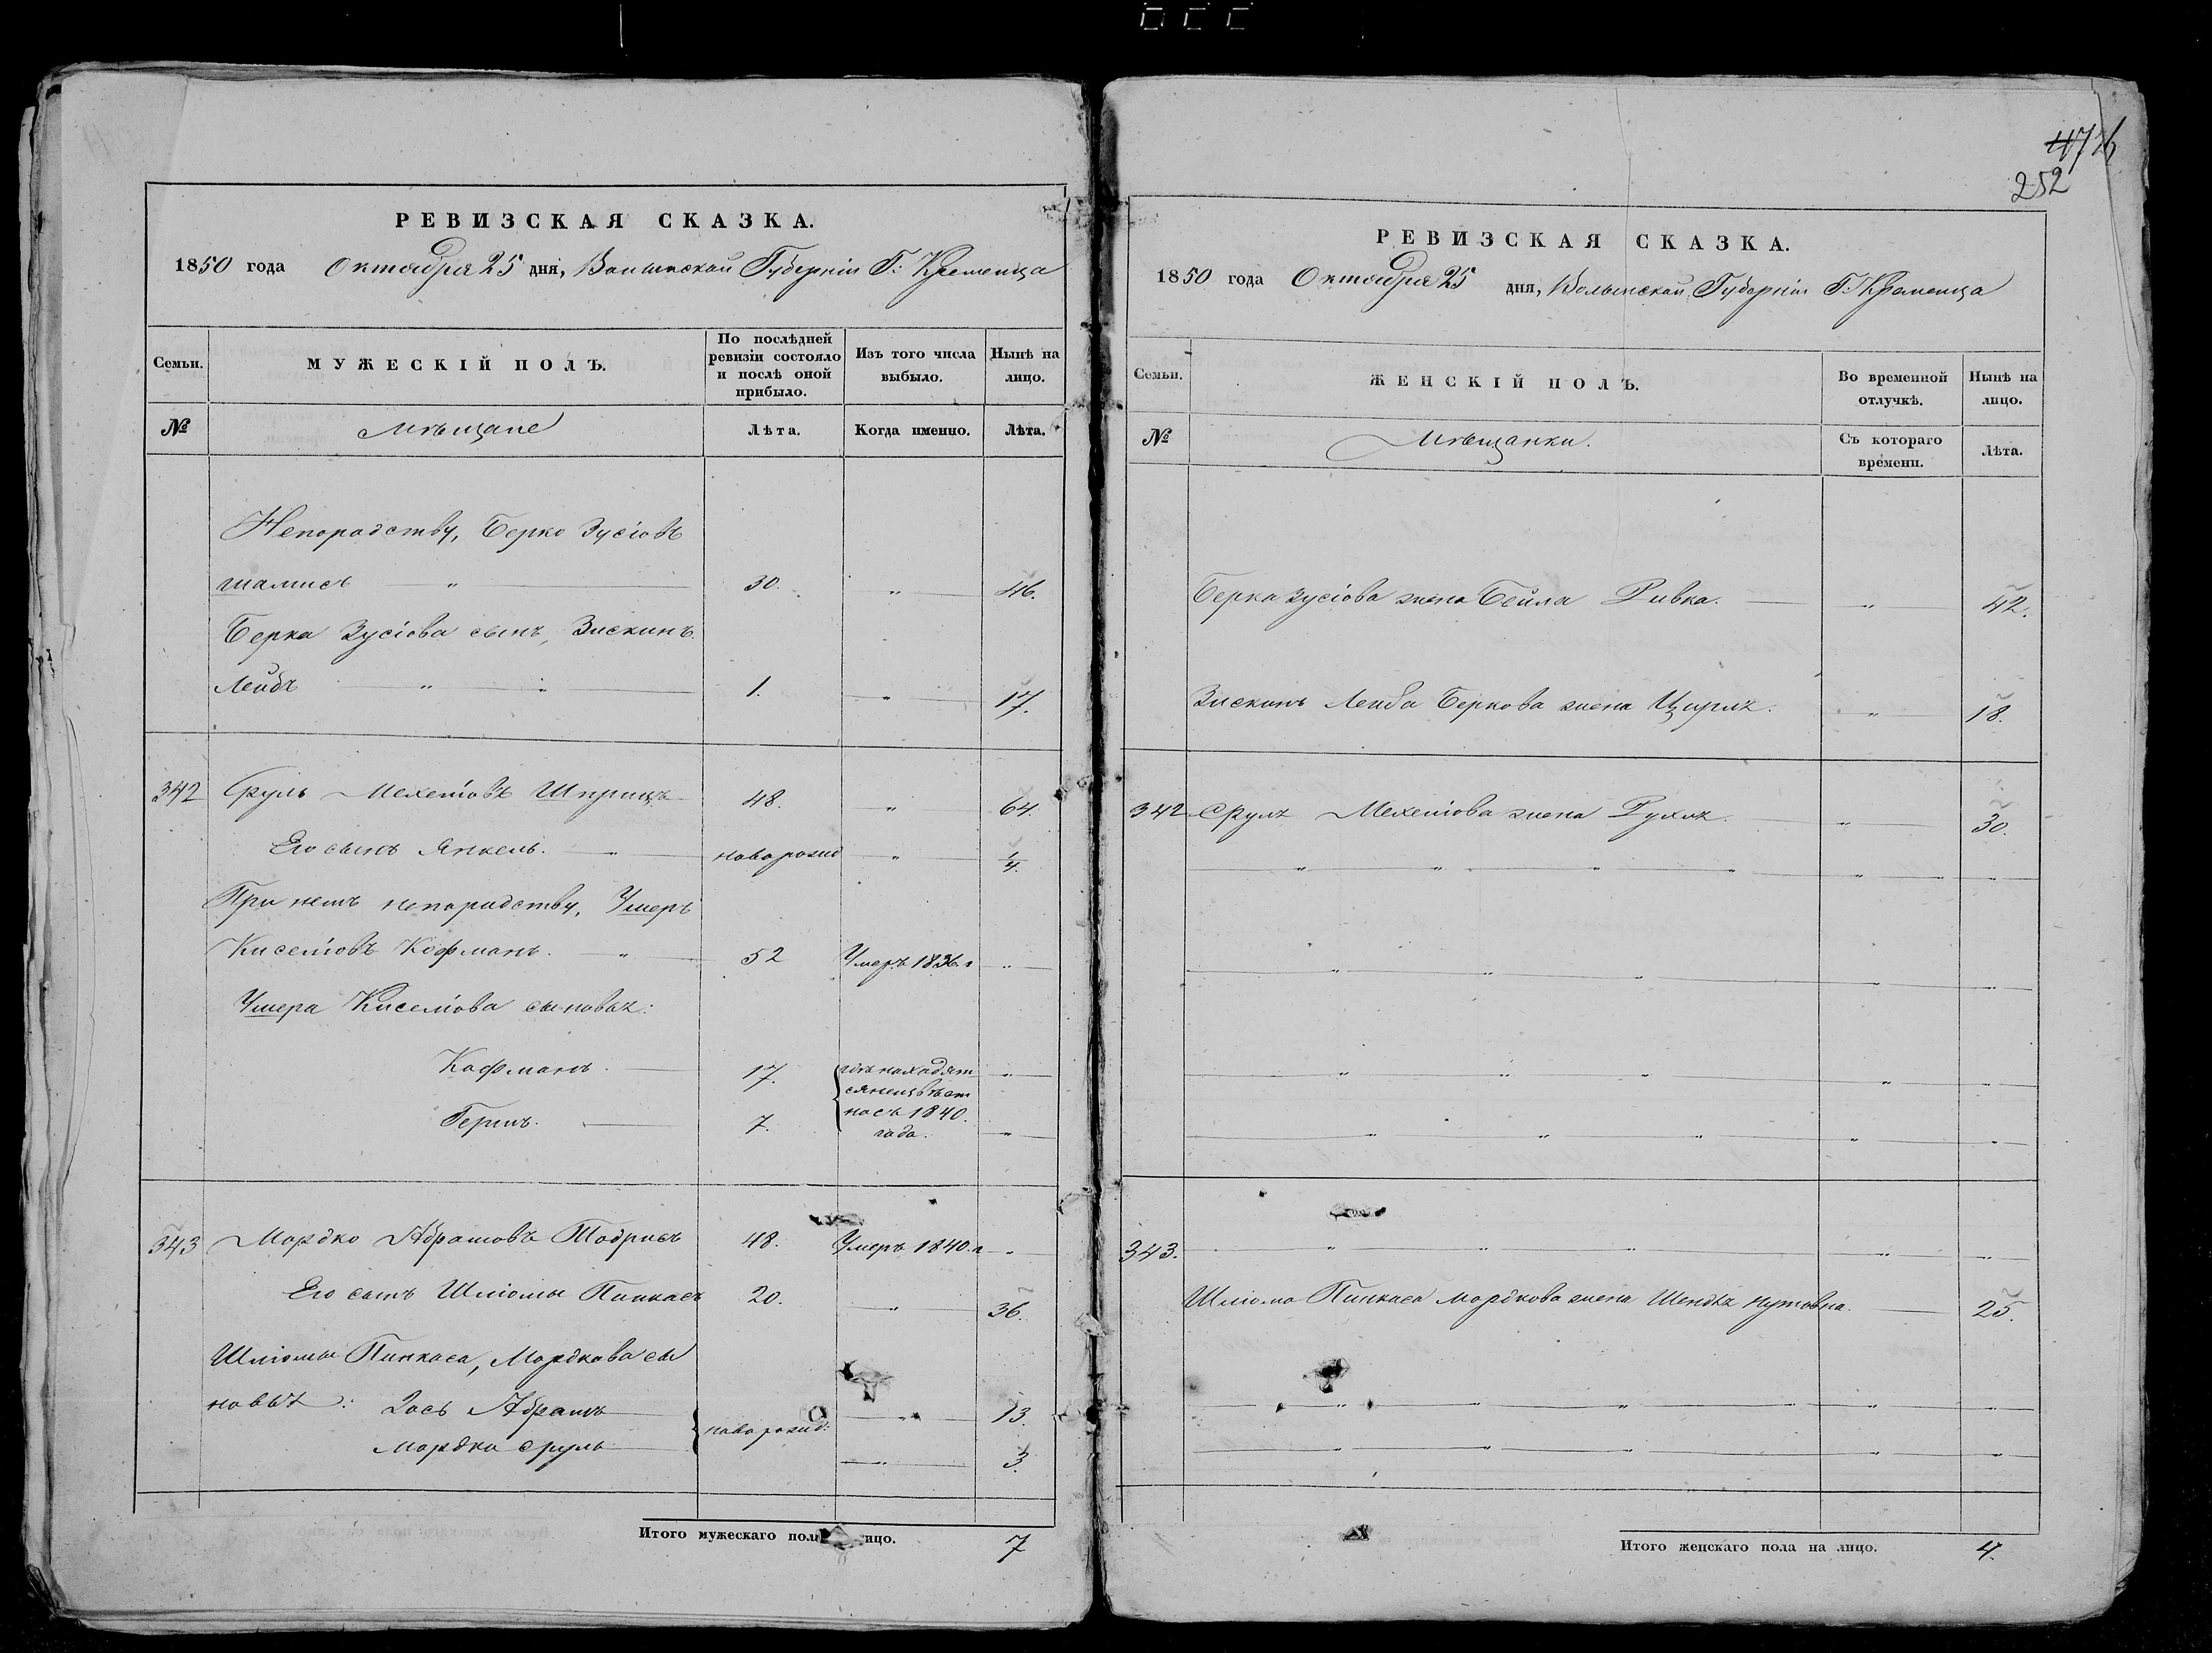 472
252
РЕВИЗСКАЯ СКАЗКА.
1850 года Октября 25 дня, Волынской Губерніи Г: Кременца
Семьи.
МУЖЕСКІЙ ПОЛЪ.
По послѣдней ревизіи состояло и послѣ оной прибыло.
Изъ того числа выбыло.
Нынѣ на лицо.
№
Мѣщане
Лѣта.
Когда именно.
Лѣта.
Непорадству, Берко Зусіовъ
шамисъ " 30. " 46.
Берка Зусіова сынъ, Зискинъ
Лейбъ " " 1. " 17.
342 Сруль Мехеліовъ Шприцъ 48. " 64.
Его сынъ Янкель. " новорожд " 1/4.
При немъ непорадству, Ушеръ
Киселіовъ Кофманъ. " 52 Умеръ 1836. г "
Ушера Киселіова сыновья:
Кофманъ. 17. гдѣ находят "
ся неизвѣст
Гершъ. 7. но съ 1840.
года. "
343 Мордко Абрамовъ Тобрисъ 48. Умеръ 1840. г "
Его сынъ Шліомы Пинкасъ 20. " 36.
Шліомы Пинкаса, Мордкова сы
новья: Зось Абрамъ новорожд: " 13.
Мордко Сруль " 3.
Итого мужескаго пола лицо. 7
РЕВИЗСКАЯ СКАЗКА.
1850 года Октября 25 дня, Волынской Губерніи Г: Кременца
Семьи.
ЖЕНСКІЙ ПОЛЪ.
Во временной отлучкѣ.
Нынѣ на лицо.
№
Мѣщанки.
Съ котораго времени.
Лѣта.
Берка Зусіова жена Бейла Ривка. " 42.
Зискинъ Лейба Беркова жена Цирля. " 18.
342 Сруля Мехеліова жена Рухля. " 30.
" " " " " "
" " " " "
" " " " "
" " " " "
343. " " " " "
Шліома Пинкаса Мордкова жена Шендля Нутовна. 25.
" " " " " "
" " " " "
Итого женскаго пола на лицо. 4.